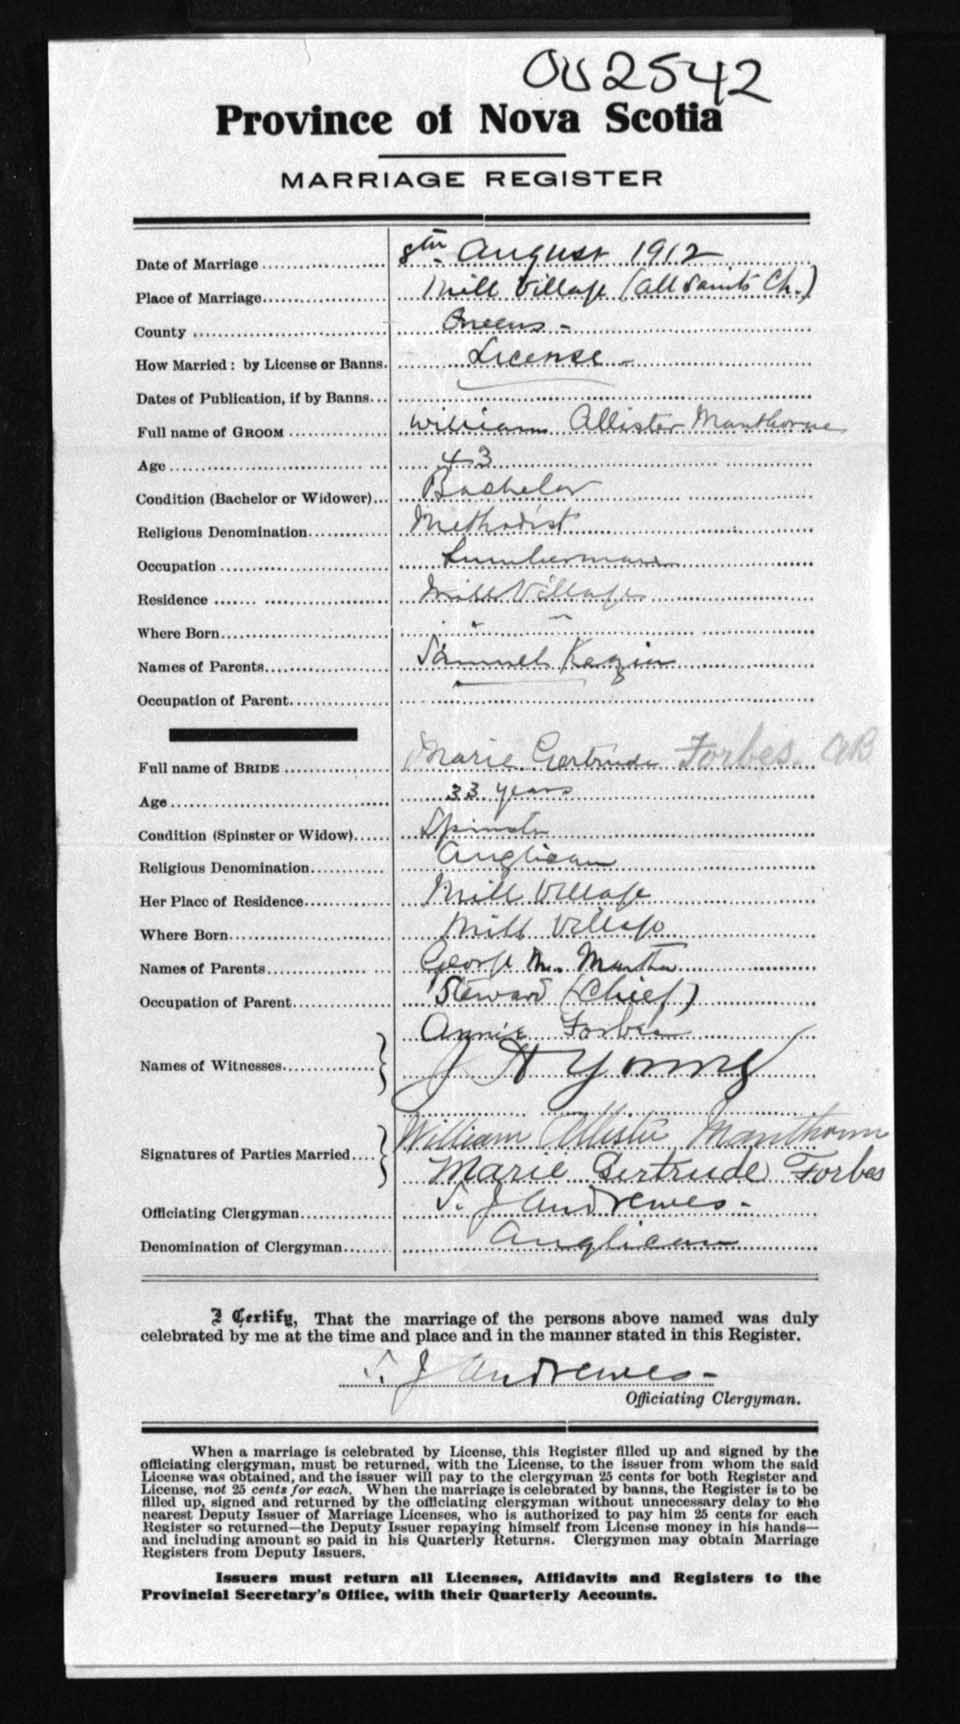 OU2542
Province of Nova Scotia
MARRIAGE REGISTER
Date of Marriage 8th August 1912
Place of Marriage Mill Village (All Saints Ch.)
County Queens -
How Married: by License or Banns. License -
Dates of Publication, if by Banns
Full name of GROOM William Allister Manthorne
Age 43
Condition (Bachelor or Widower) Bachelor
Religious Denomination Methodist
Occupation Lumberman
Residence Mill Village
Where Born " "
Names of Parents Samuel Kezia
Occupation of Parent
Full name of BRIDE Marie Gertrude Forbes. AB
Age 33 years
Condition (Spinster or Widow) Spinster
Religious Denomination Anglican
Her Place of Residence Mill Village
Where Born Mill Village
Names of Parents George M. Martha
Occupation of Parent Steward (Chief)
Annie Forbes
Names of Witnesses J H Young
William Allister Manthorne
Signatures of Parties Married Marie Gertrude Forbes
Officiating Clergyman T. J Andrewes -
Denomination of Clergyman Anglican
I Certify, That the marriage of the persons above named was duly
celebrated by me at the time and place and in the manner stated in this Register.
T. J Andrewes -
Officiating Clergyman.
When a marriage is celebrated by License, this Register filled up and signed by the
officiating clergyman, must be returned, with the License, to the issuer from whom the said
License was obtained, and the issuer will pay to the clergyman 25 cents for both Register and
License, not 25 cents for each. When the marriage is celebrated by banns, the Register is to be
filled up, signed and returned by the officiating clergyman without unnecessary delay to the
nearest Deputy Issuer of Marriage Licenses, who is authorized to pay him 25 cents for each
Register so returned—the Deputy Issuer repaying himself from License money in his hands—
and including amount so paid in his Quarterly Returns. Clergymen may obtain Marriage
Registers from Deputy Issuers.
Issuers must return all Licenses, Affidavits and Registers to the
Provincial Secretary's Office, with their Quarterly Accounts.